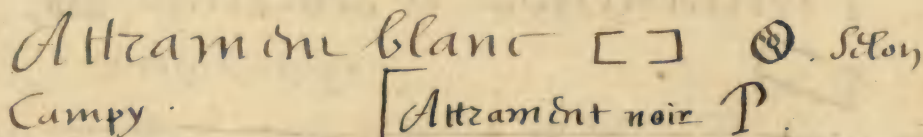 Attrament blanc [ ] ⊗. Selon
Campy. [Attrament noir P.